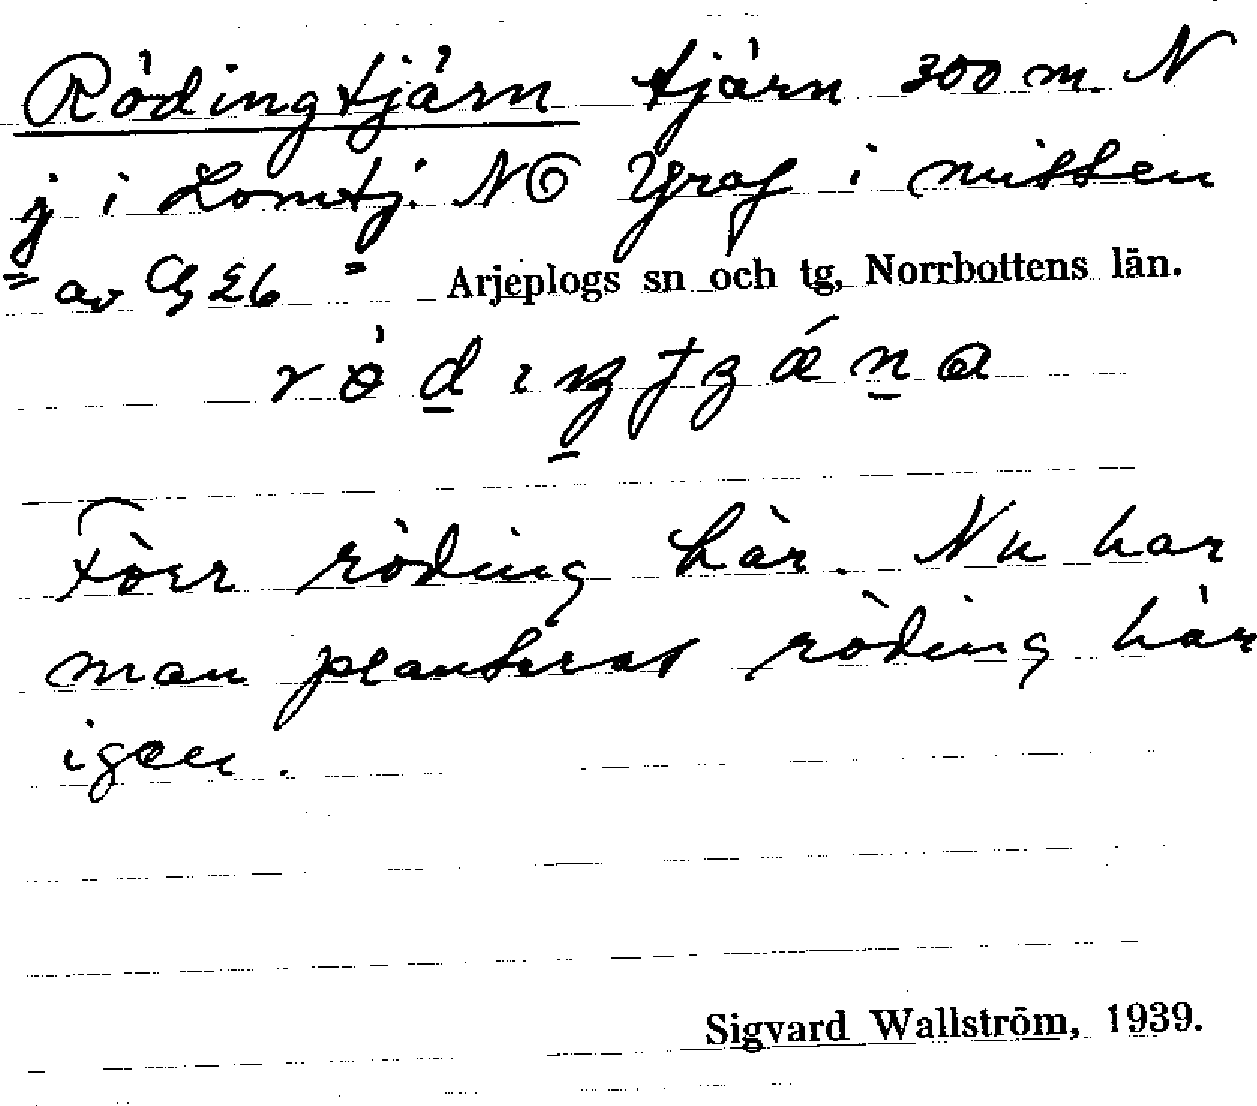 Rödingtjärn tjärn 300 m. N
j i Lomtj. NO Yraf i mitten
av Cg 26 Arjeplogs sn och tg, Norrbottens län.
Förr röding här. Nu har
man planterat röding här
igen.
Sigvard Wallström, 1939.